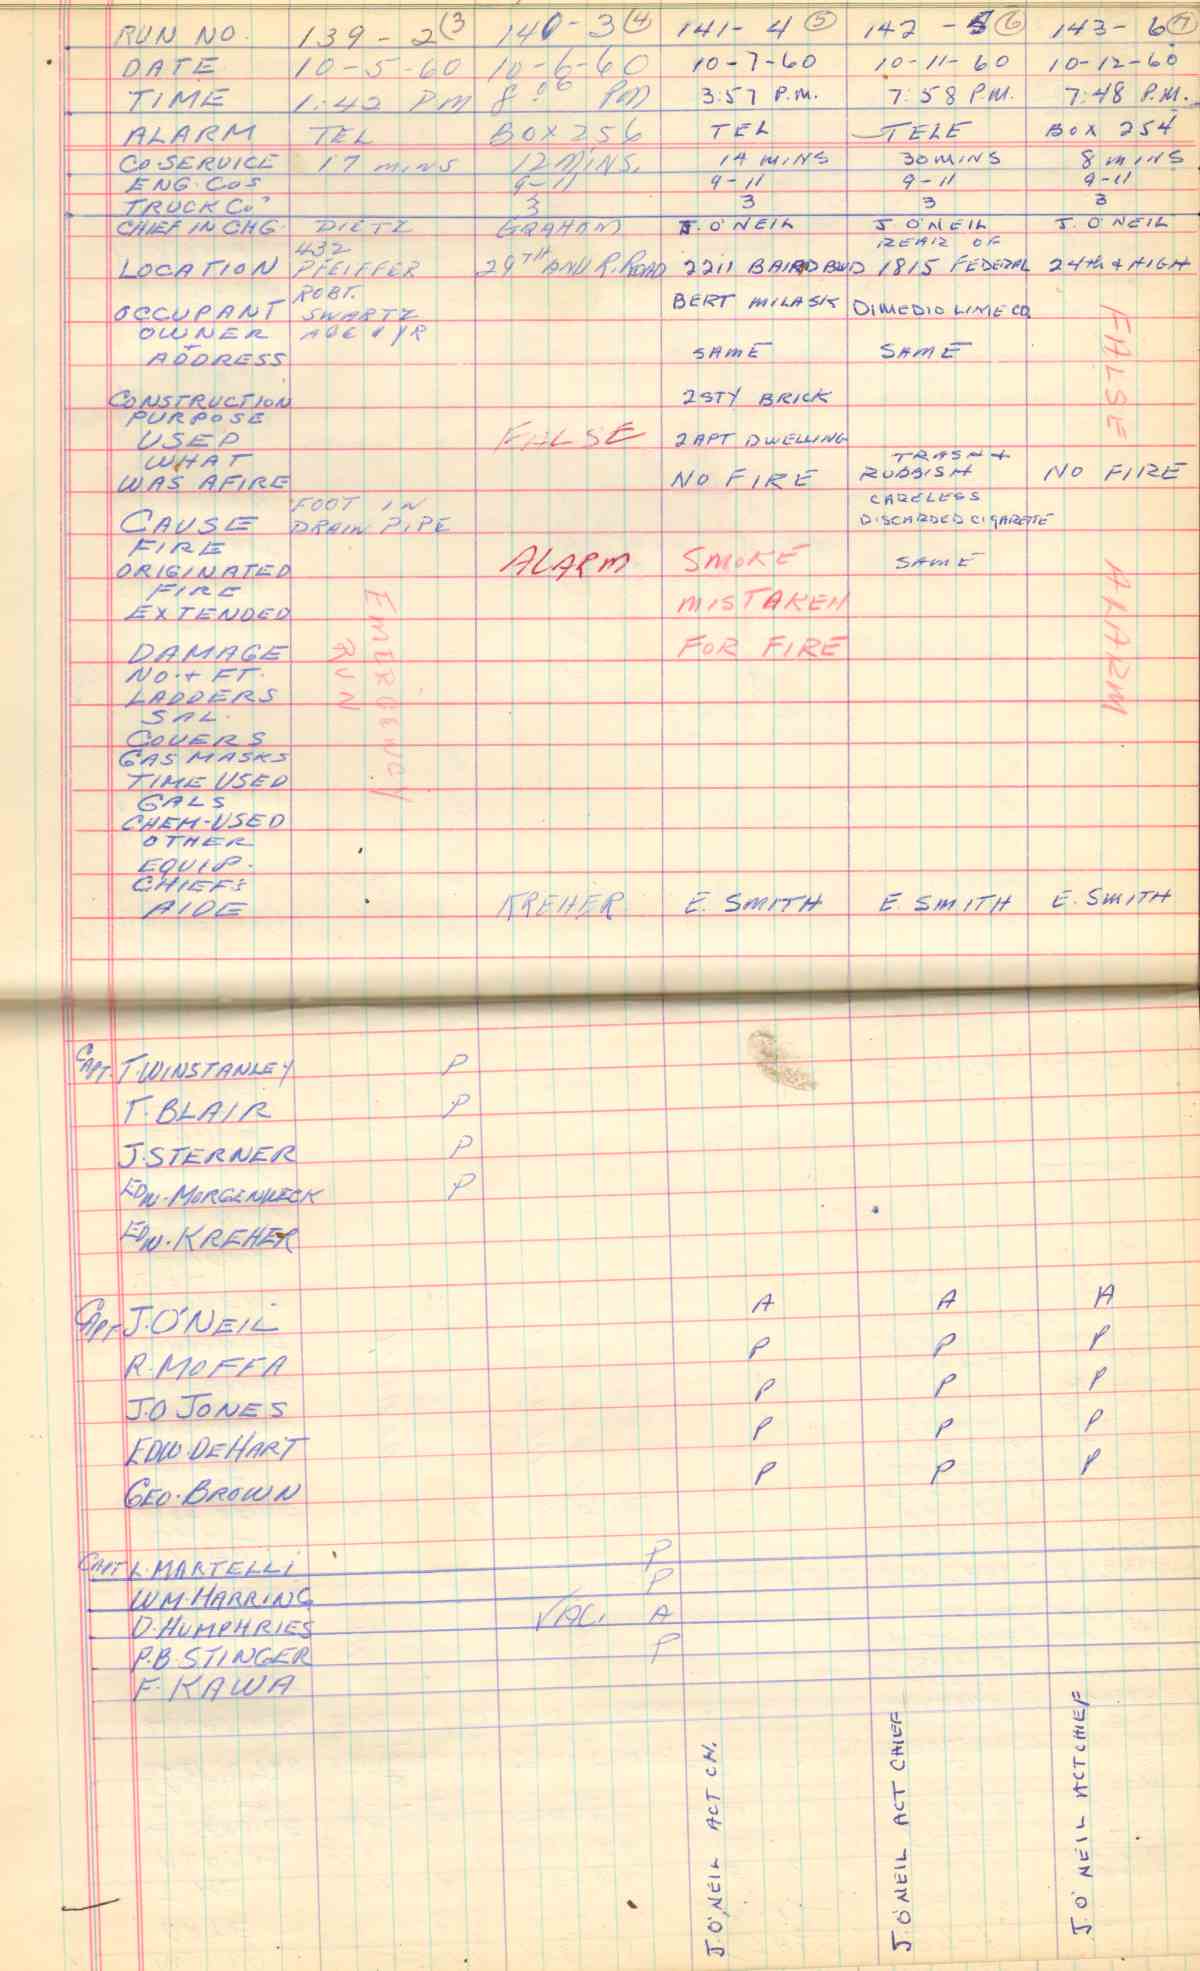 RUN NO. 139-2 (3 140-3 (4) 141-4 (5) 142-5 (6) 143-6 (7)
DATE 10-5-60 10-6-60 10-7-60 10-11-60 10-12-60
TIME 1:42 PM 8:06 PM 3:57 P.M. 7:58 P.M. 7:48 P.M.
ALARM TEL BOX 256 TEL TELE BOX 254
CO-SERVICE 17 mins 12 MINS. 14 MINS 30 MINS 8 MINS
ENG. COS 9-11 9-11 9-11 9-11
TRUCK CO. 3 3 3 3
CHIEF IN CHG. DIETZ GRAHAM J. O'NEIL J. O'NEIL J. O'NEIL
432 REAR OF
LOCATION PFEIFFER 29TH AND R. ROAD 2211 BAIRD BLVD 1815 FEDERAL 24th + HIGH
ROBT. BERT MILASK DIMEDIO LIME CO.
OCCUPANT SWARTZ
OWNER AGE YR
+
ADDRESS SAME SAME
CONSTRUCTION 2 STY BRICK
PURPOSE
USED FALSE 2 APT DWELLING
WHAT TRASH +
WAS AFIRE NO FIRE RUBBISH NO FIRE
FOOT IN CARELESS
CAUSE DRAIN PIPE DISCARDED CIGARETTE
FIRE
ORIGINATED ALARM SMOKE SAME
FIRE
EXTENDED MISTAKEN
DAMAGE FOR FIRE
NO. + FT.
LADDERS
SAL.
COVERS
GAS MASKS
TIME USED
GALS
CHEM-USED
OTHER
EQUIP.
CHIEFS
AIDE KREHER E. SMITH E. SMITH E. SMITH
EMERGENCY
RUN
FALSE ALARM
CAPT. T. WINSTANLEY P
T. BLAIR P
J. STERNER P
EDW. MORGENWECK P
EDW. KREHER
CAPT J. O'NEIL A A A
R. MOFFA P P P
J.O JONES P P P
EDW. DEHART P P P
GEO. BROWN P P P
CAPT L. MARTELLI P
WM. HARRING P
D. HUMPHRIES VAC. A
P.B. STINGER P
F. KAWA
J. O'NEIL ACT CH.
J. O'NEIL ACT CHIEF
J. O'NEIL ACT CHIEF